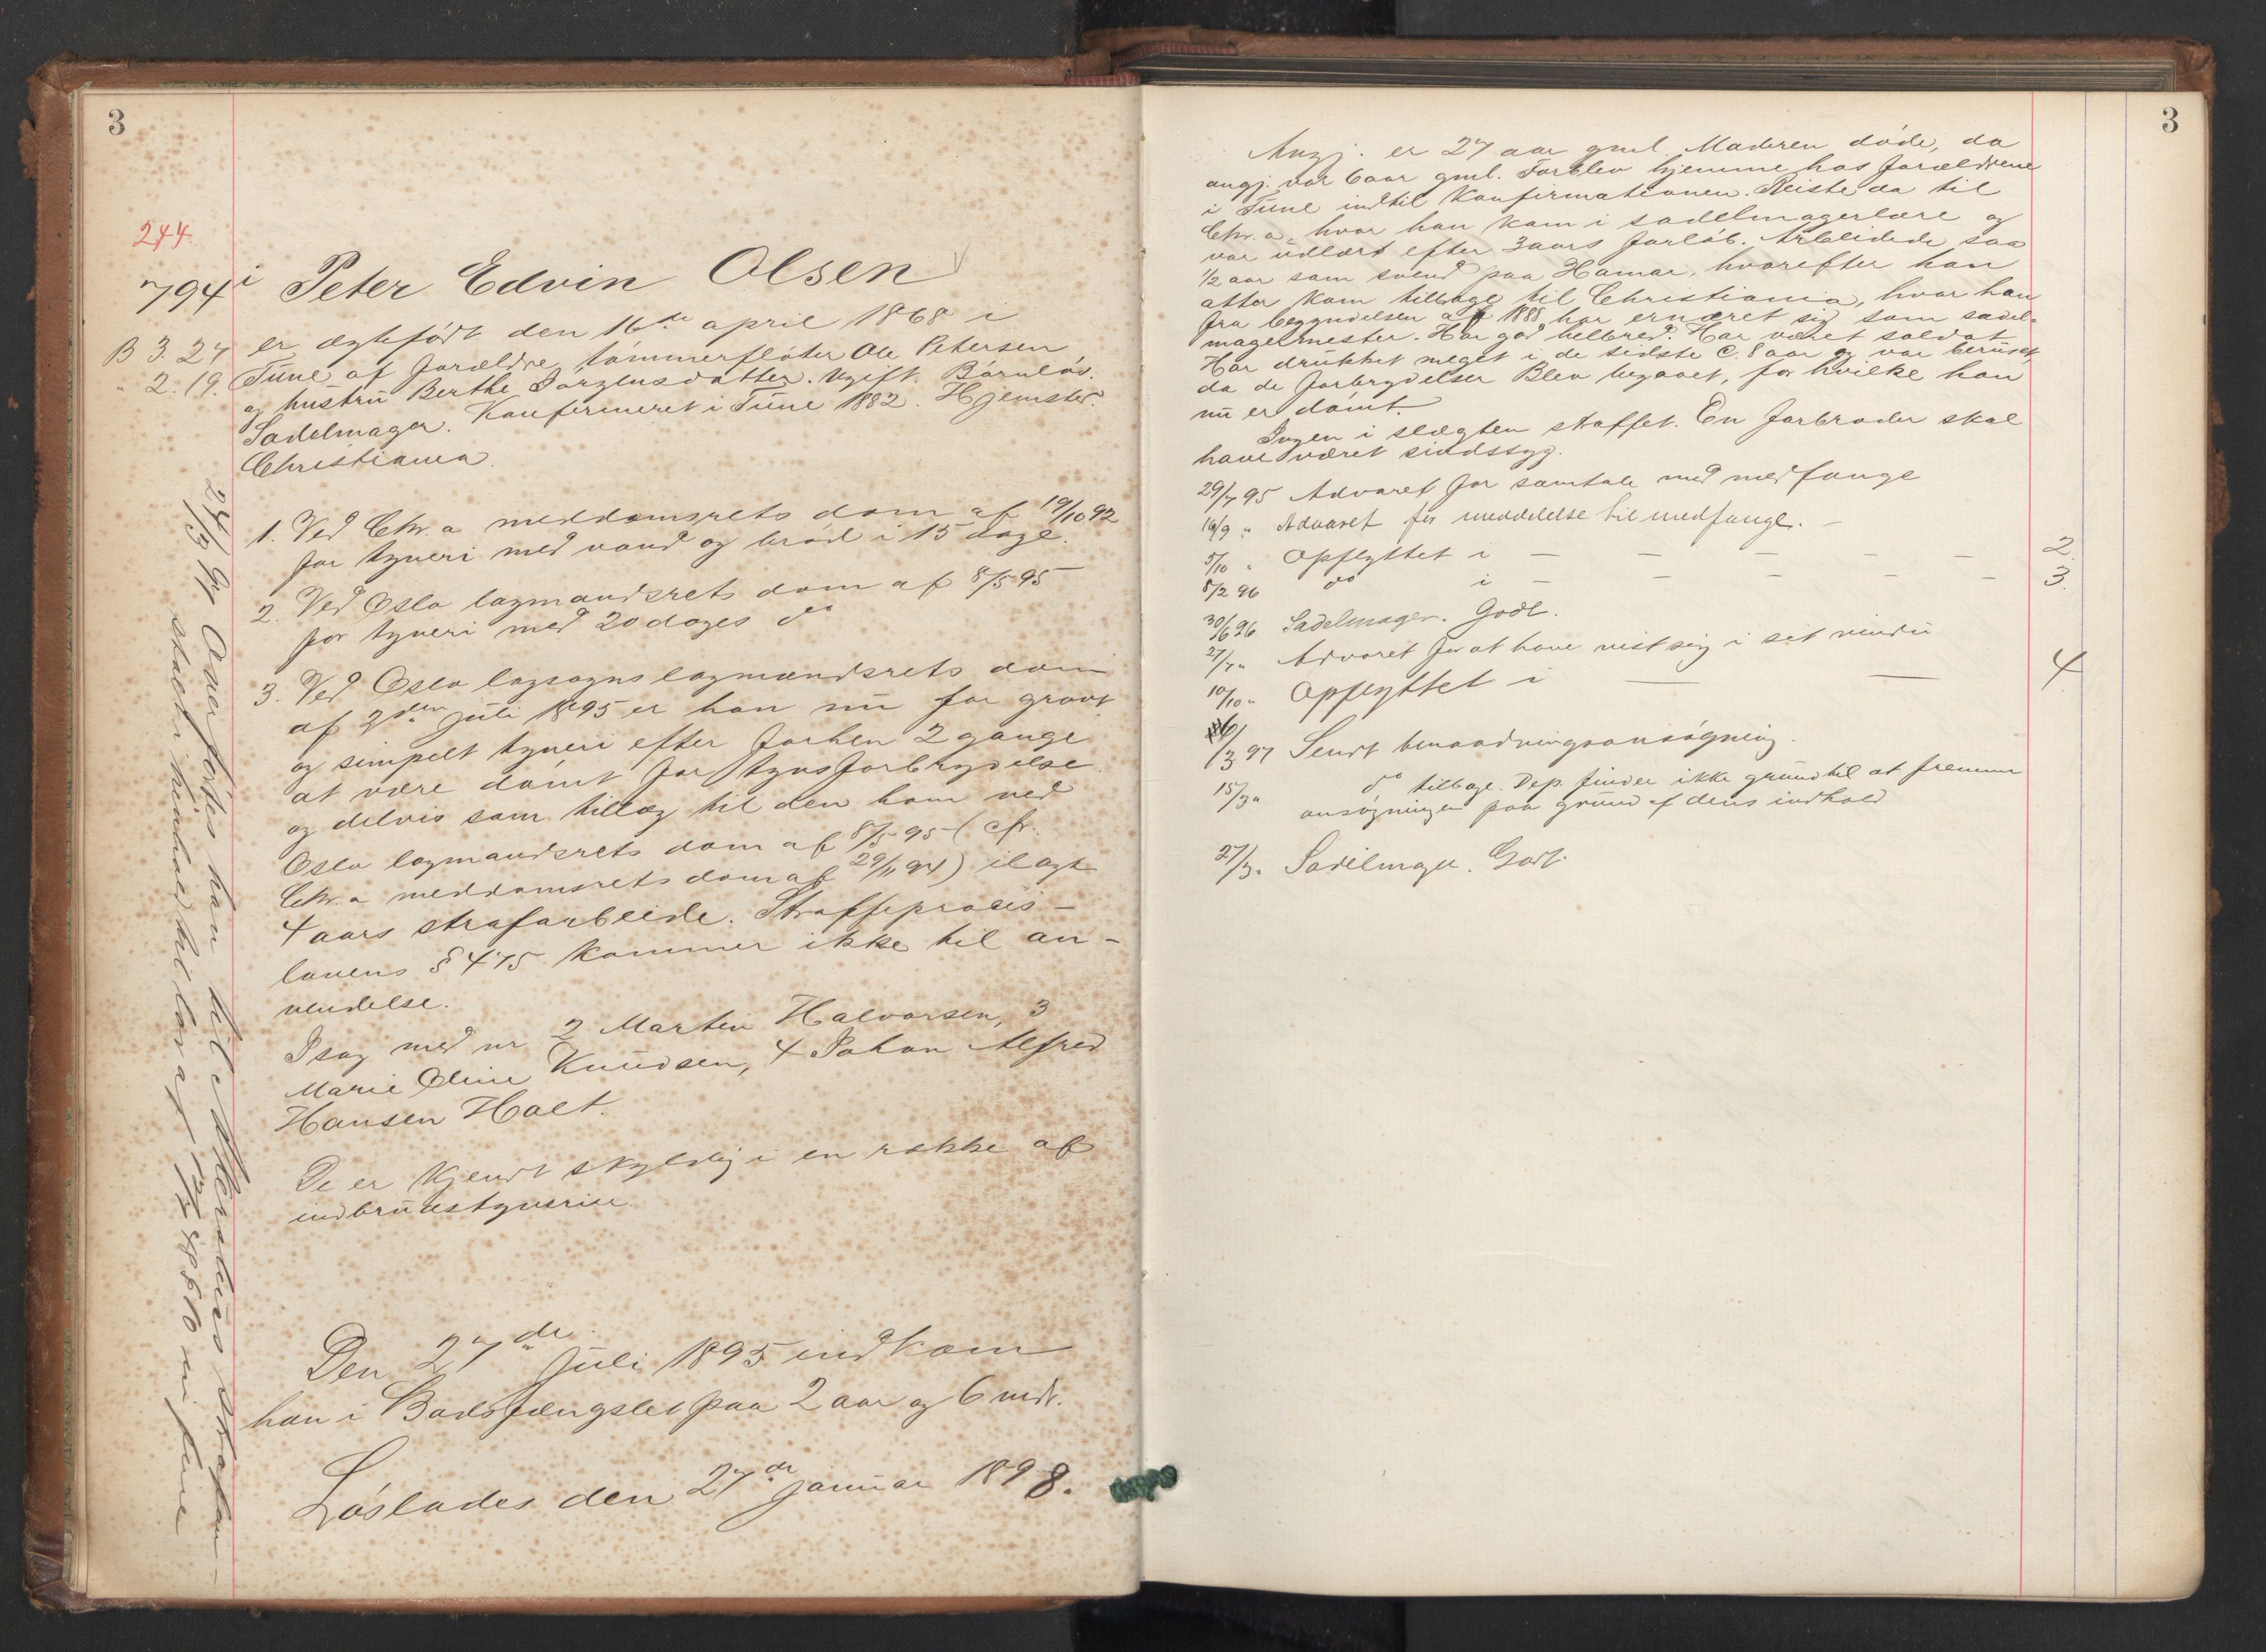 3
244.
794 i Peter Edvin Olsen
B 3. 24 er ægtefødt den 16de april 1868 i
" 2. 19. Tune af forældre, tømmerfløter Ole Petersen
og hustru Berthe Jørgensdatter. Ugift. Barnløs.
Sadelmager. Konfirmeret i Tune 1882. Hjemsted:
Christiania.
1. Ved Chr.a meddomsrets dom af 19/10 92
for tyveri med vand og brød i 15 dage.
2. Ved Oslo lagmandsrets dom af 8/5 95
for tyveri med 20 dages do
3. Ved Oslo lagsogns lagmandsrets dom
af 2den juli 1895 er han nu for grovt
og simpelt tyveri efter forhen 2 gange
at være dømt for tyvsforbrydelse
og delvis som tillæg til den ham ved
Oslo lagmandsrets dom af 8/5 95 (cfr.
Chr.a meddomsrets dom af 29/11 94) ilagt
4 aars strafarbeide. Straffeproces-
lovens § 475 kommer ikke til an-
vendelse.
I sag med nr 2 Martin Halvorsen, 3
Marie Oline Knudsen, 4 Johan Alfred
Hansen Holt.
De er kjendt skyldig i en række af
indbrudstyverier.
Den 27de juli 1895 indkom
han i Bodsfængslet paa 2 aar og 6 mdr.
Løslades den 27de januar 1898.
Overførtes han til Akershus strafan-
stalt i henhold til lov af
3
Angj. er 27 aar gml. Moderen døde, da
angj. var 6 aar gml. Forblev hjemme hos forældrene
i Tune indtil konfirmationen. Reiste da til
Chr.a, hvor han kom i sadelmagerlære og
var udlært efter 3 aars forløb. Arbeidede saa
1/2 aar som svend paa Hamar, hvorefter han
atter kom tilbage til Christiania, hvor han
fra begyndelsen af 1888 har ernæret sig som sadel-
magermester. Har god helbred. Har været soldat.
Har drukket meget i de sidste c. 8 aar og var beruset
da de forbrydelser blev begaaet, for hvilke han
nu er dømt.
Ingen i slægten straffet. En farbroder skal
have været sindssyg.
29/7 95 Advaret for samtale med medfange
16/9 " Advaret for meddelelse til medfange. -
5/10 " Opflyttet i — — — — — 2.
8/2 96 do i — — — — — 3.
30/6 96 Sadelmager. Godt.
27/7 " Advaret for at have vist sig i sit vindu
10/10 " Opflyttet i — — 4.
6/3 97 Sendt benaadningsansøgning.
15/3 " do tilbage. Dep. finder ikke grund til at fremme
ansøgningen paa grund af dens indhold
27/3 " Sadelmager. Godt.